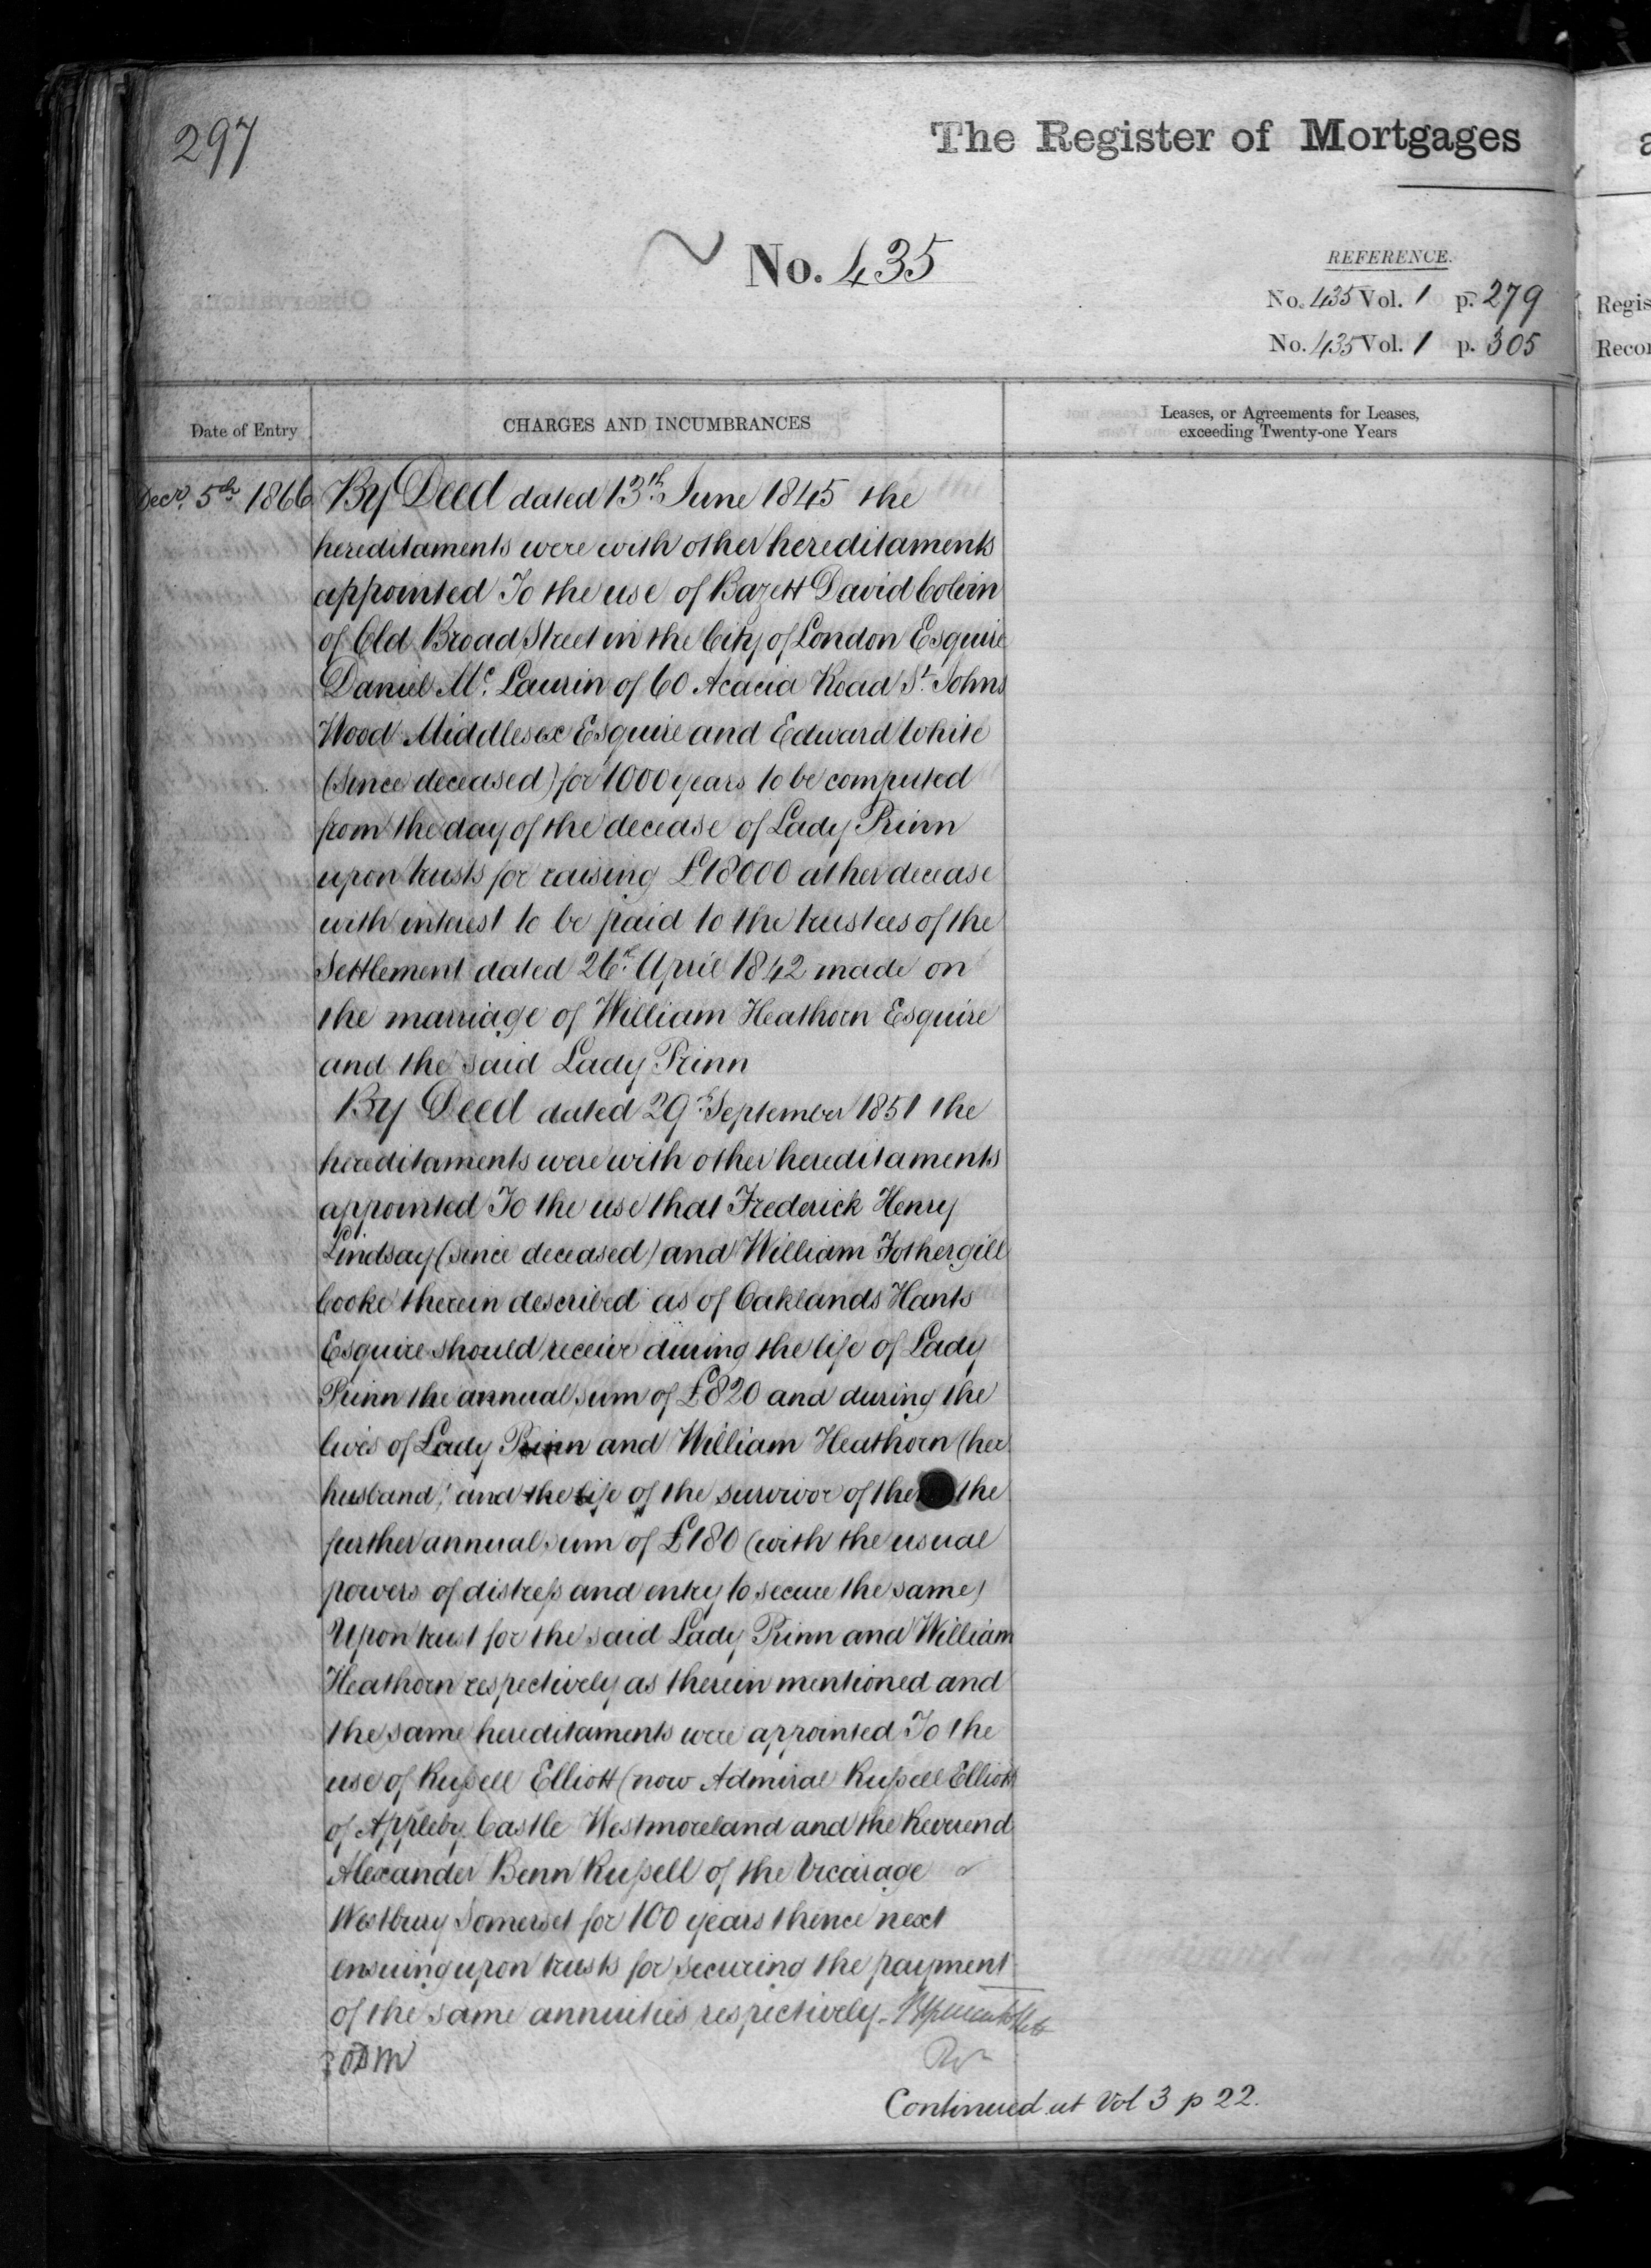 297
The Register of Mortgages
No. 435
REFERENCE.
No. 435 Vol. 1 p. 279
No. 435 Vol. 1 p. 305
Regis
Recor
Date of Entry
CHARGES AND INCUMBRANCES
Leases, or Agreements for Leases,
exceeding Twenty-one Years
Decr. 5th 1866 By Deed dated 13th June 1845 the
hereditaments were with other hereditaments
appointed To the use of Bazett David Colvin
of Old Broad Street in the City of London Esquire
Daniel Mc. Laurin of 60 Acacia Road St. Johns
Wood Middlesex Esquire and Edward White
(since deceased) for 1000 years to be computed
from the day of the decease of Lady Prinn
upon trusts for raising £18000 at her decease
with interest to be paid to the trustees of the
Settlement dated 26th. April 1842 made on
the marriage of William Heathorn Esquire
and the said Lady Prinn
By Deed dated 29th September 1851 the
hereditaments were with other hereditaments
appointed To the use that Frederick Henry
Lindsay (since deceased) and William Fothergill
Cooke therein described as of Oaklands Hants
Esquire should receive during the life of Lady
Prinn the annual sum of £820 and during the
lives of Lady Prinn and William Heathorn (her
husband) and the life of the survivor of the the
further annual sum of £180 (with the usual
powers of distress and entry to secure the same)
Upon trust for the said Lady Prinn and William
Heathorn respectively as therein mentioned and
the same hereditaments were appointed To the
use of Russell Elliott (now Admiral Russell Elliott
of Appleby Castle Westmoreland and the Reverend
Alexander Benn Russell of the Vicarage
Westbury Somerset for 100 years thence next
ensuing upon trusts for securing the payment
of the same annuities respectively.
Continued at Vol 3 p 22.